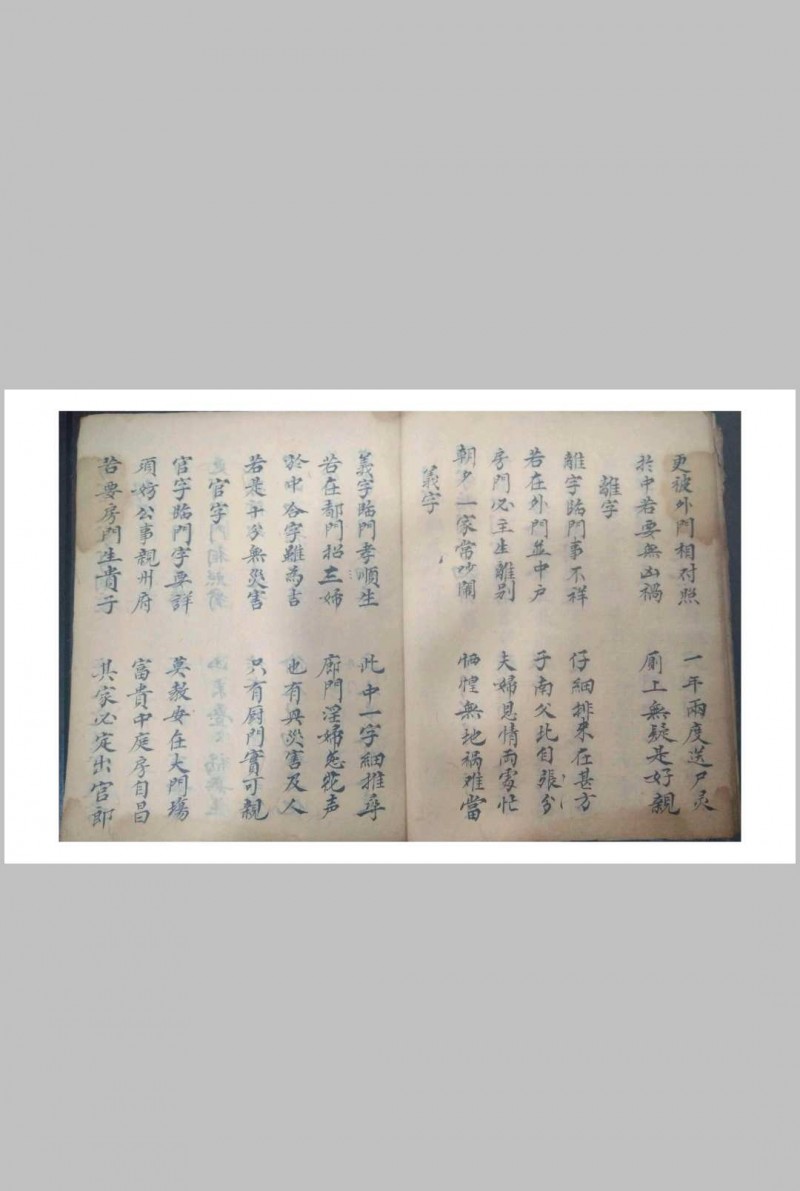 更被外門相対照 一年兩度送尸灵
於中若要無凶禍 厠上無疑是好親
離字
離字臨門事不祥 仔細排来在甚方
若在外門並中戶 子南父北自張分
房門必主生離别 夫婦恩情两處忙
朝夕一家常吵鬧 恓惶無地祸难當
義字
義字臨門孝順生 此中一字細推尋
若在都門招三婦 廊門淫婦恋花声
於中合字雖為吉 也有與災害及人
若是平安無災害 只有厨門實可親
官字
官字臨門字要詳 莫教安在大門塲
須妨公事親州府 富貴中庭房自昌
若要房門生貴子 其家必定出官郎